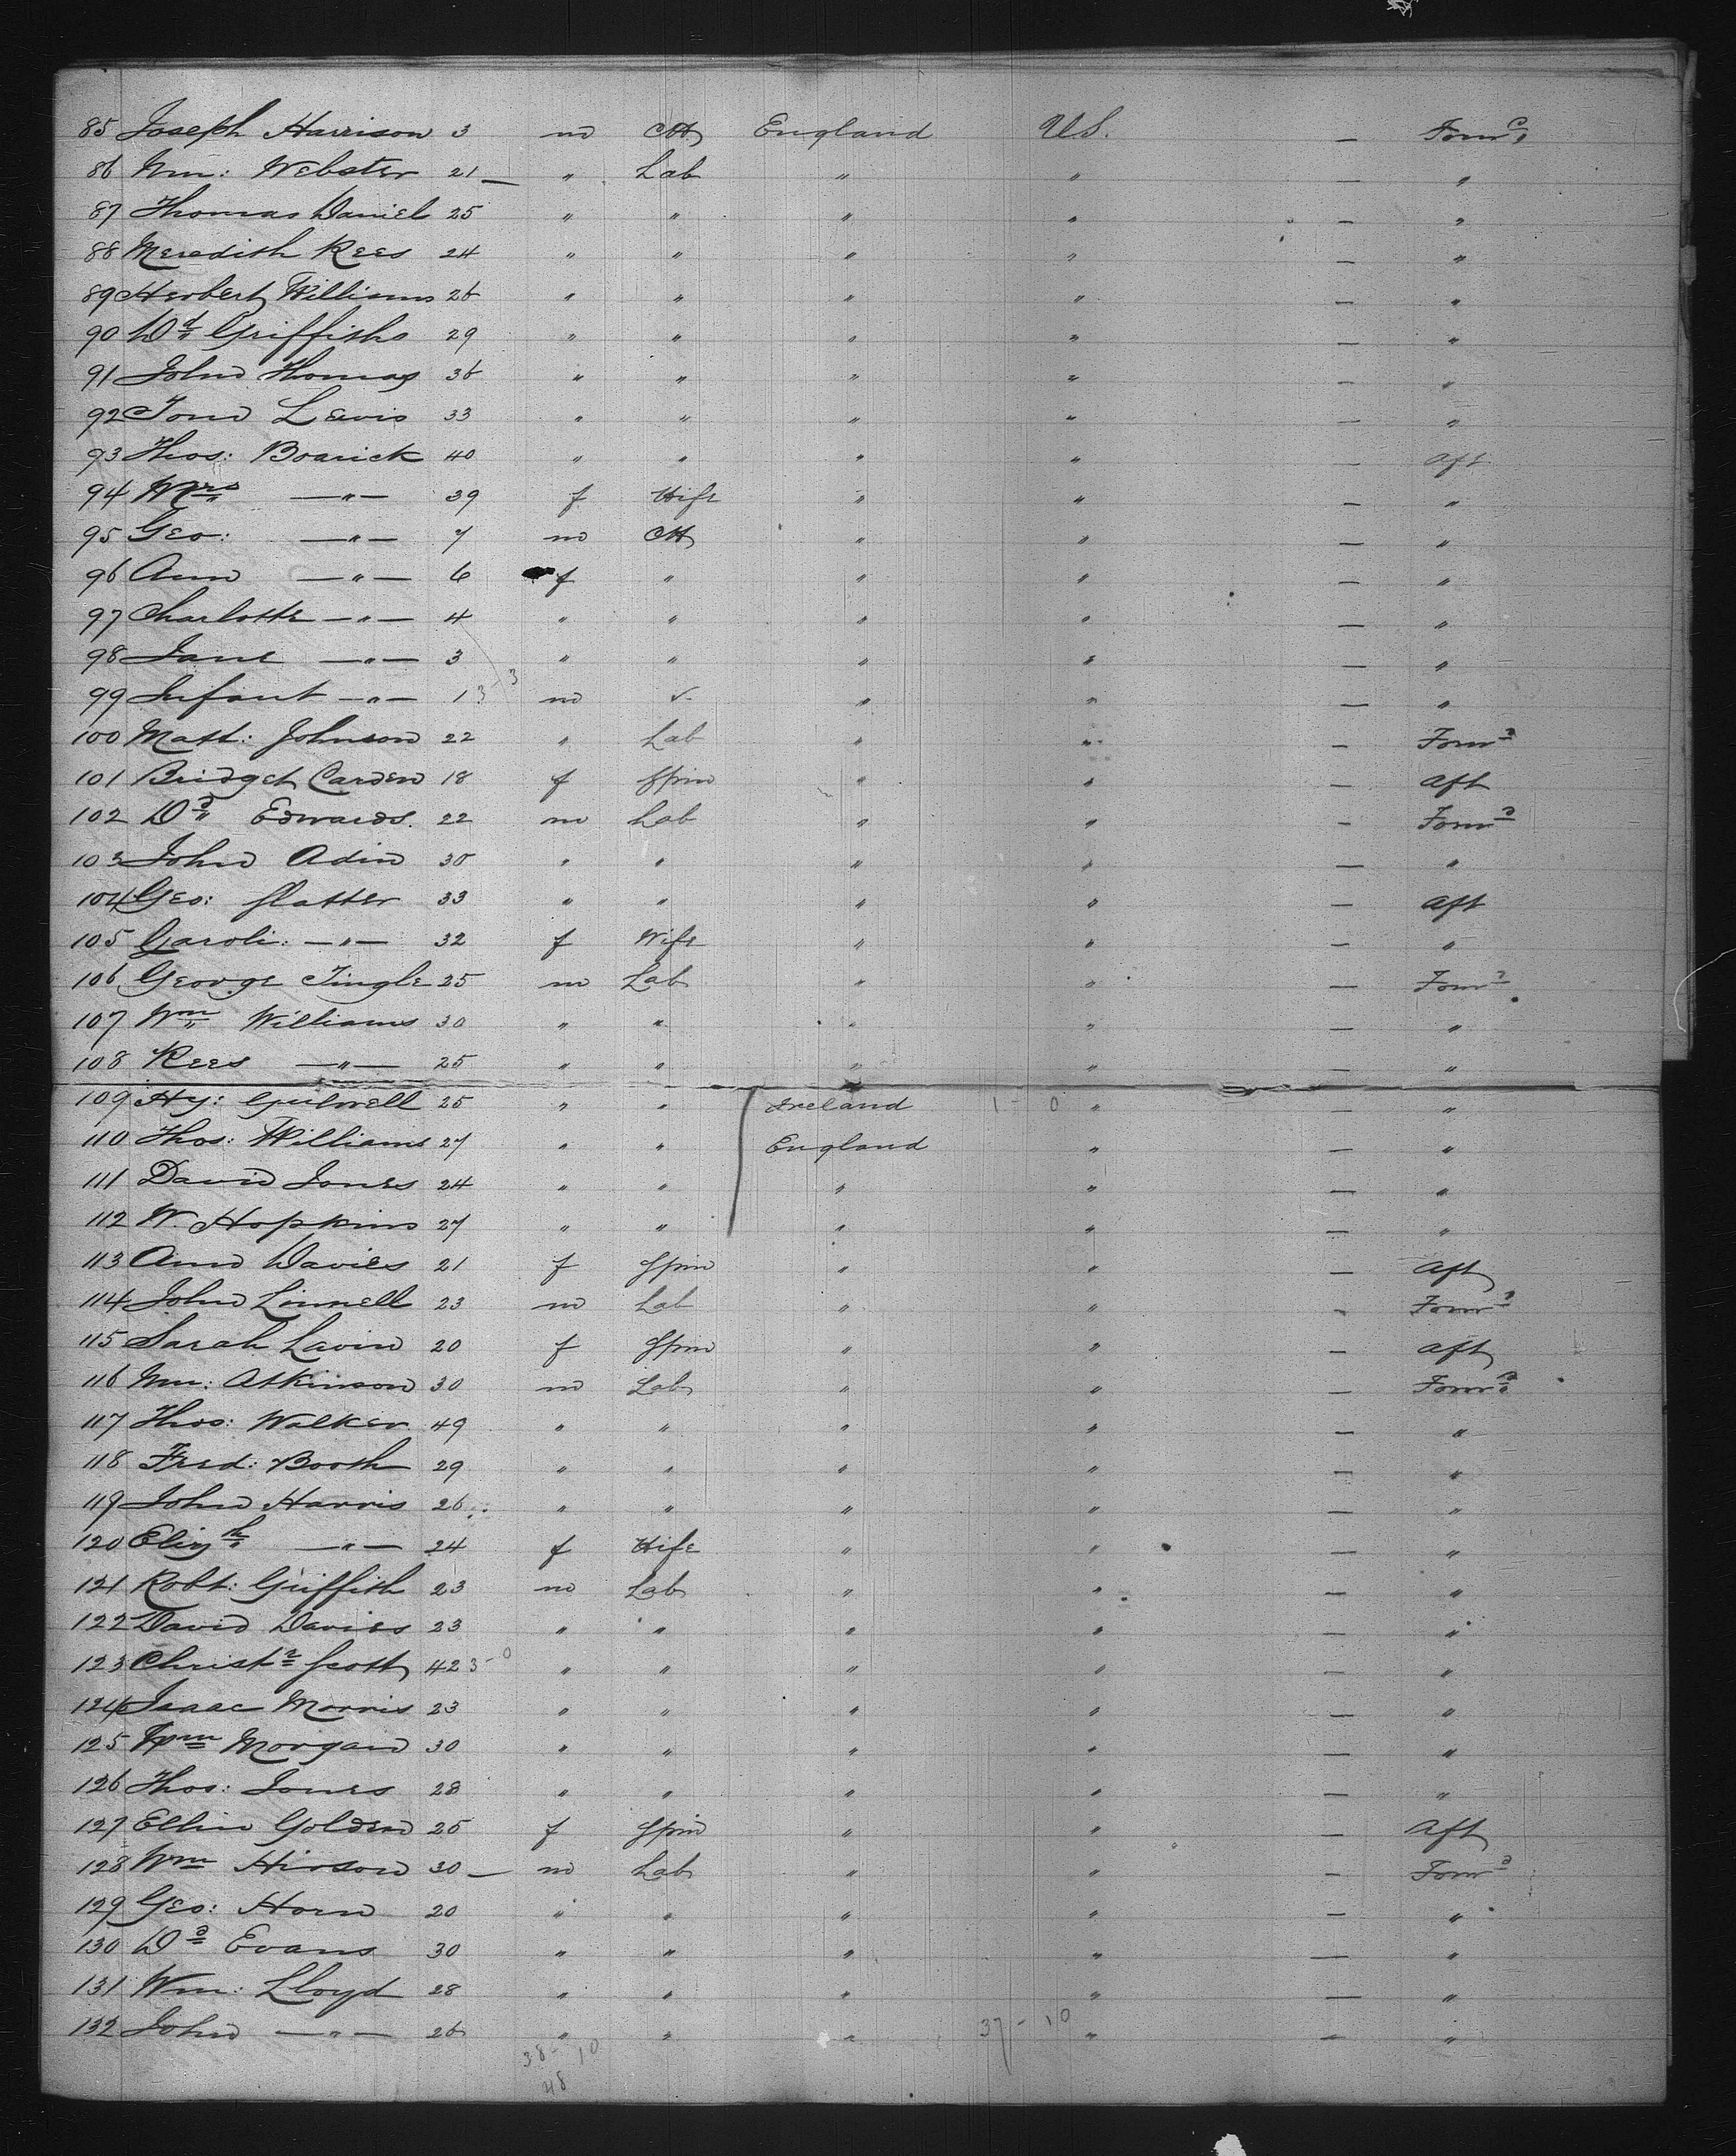 85 Joseph Harrison 3 m Ch England U.S. — Forwd
86 Wm: Webster 21 — " Lab " " — "
87 Thomas Daniel 25 " " " " — "
88 Meredith Rees 24 " " " " — "
89 Herbert Williams 26 " " " " — "
90 Dd Griffiths 29 " " " " — "
91 John Thomas 36 " " " " — "
92 Tom Lewis 33 " " " " — "
93 Thos: Boarick 40 " " " " — Aft
94 Mrs —"— 39 f Wife " " — "
95 Geo: —"— 7 m Ch " " — "
96 Ann —"— 6 f " " " — "
97 Charlotte —"— 4 " " " " — "
98 Jane —"— 3 " " " " — "
99 Infant —"— 1 3-3 m " " — "
100 Matt: Johnson 22 " Lab " " — Forwd
101 Bridget Carden 18 f Spin " " — Aft
102 Dd Edwards. 22 m Lab " " — Forwd
103 John Adin 30 " " " " — "
104 Geo: Slatter 33 " " " " — Aft
105 Caroli: —"— 32 f Wife " " — "
106 George Tingle 25 m Lab " " — Forwd
107 Wm Williams 30 " " " " — "
108 Rees —"— 25 " " " " — "
109 Hy: 25 " " Ireland 1-0 " — "
110 Thos: Williams 27 " " England " — "
111 David Jones 24 " " " " — "
112 W. Hopkins 27 " " " " — "
113 Ann Davies 21 f Spin " " — Aft
114 John Linnell 23 m Lab " " — Forwd
115 Sarah Lavin 20 f Spin " " — Aft
116 Wm: Atkinson 30 m Lab " " — Forwd
117 Thos: Walker 49 " " " " — "
118 Fred: Booth 29 " " " " — "
119 John Harris 26 " " " " — "
120 Elizth —"— 24 f Wife " " — "
121 Robt: Griffith 23 m Lab " " — "
122 David Davies 23 " " " " — "
123 Christr Scott 42 3-0 " " " " — "
124 Isaac Morris 23 " " " " — "
125 Wm Morgan 30 " " " " — "
126 Thos: Jones 28 " " " " — "
127 Ellin Golden 25 f Spin " " — Aft
128 Wm Hirson 30 — m Lab " " — Forwd
129 Geo: Horn 20 " " " " — "
130 Dd Evans 30 " " " " — "
131 Wm: Lloyd 28 " " " " — "
132 John —"— 26 " " " 37-10 " — "
38-10
48